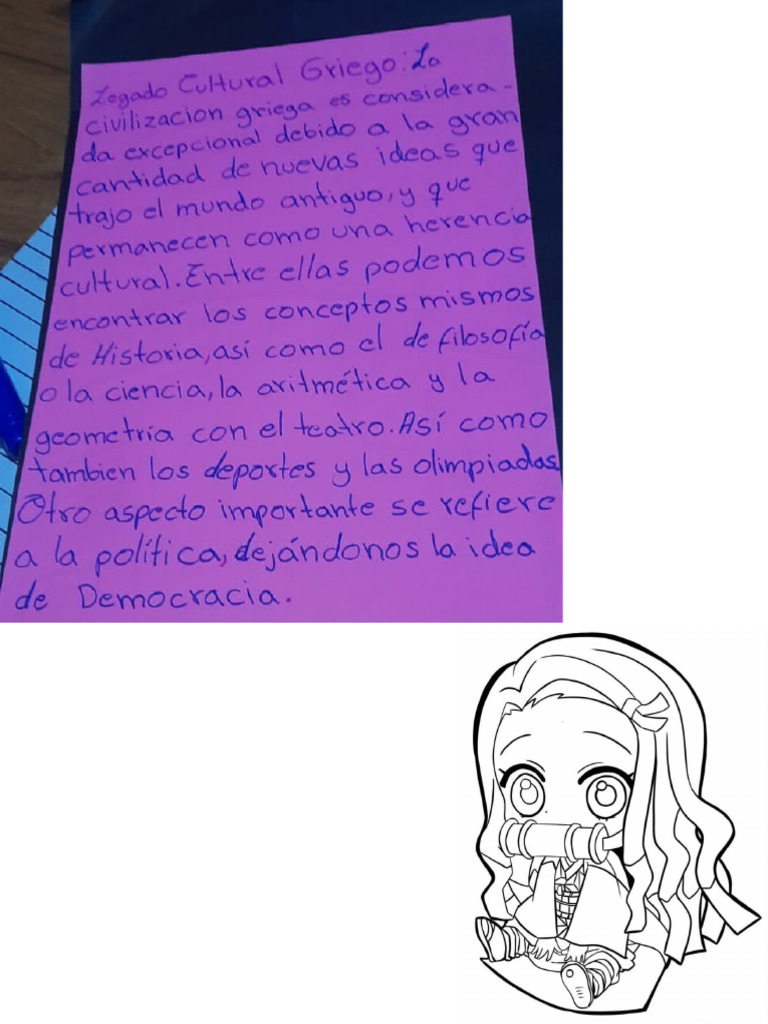 Legado Cultural Griego: La
civilizacion griega es considera-
da excepcional debido a la gran
cantidad de nuevas ideas que
trajo el mundo antiguo, y que
permanecen como una herencia
cultural. Entre ellas podemos
encontrar los conceptos mismos
de Historia, así como el de filosofía
o la ciencia, la aritmética y la
geometría con el teatro. Así como
tambien los deportes y las olimpiadas.
Otro aspecto importante se refiere
a la política, dejándonos la idea
de Democracia.